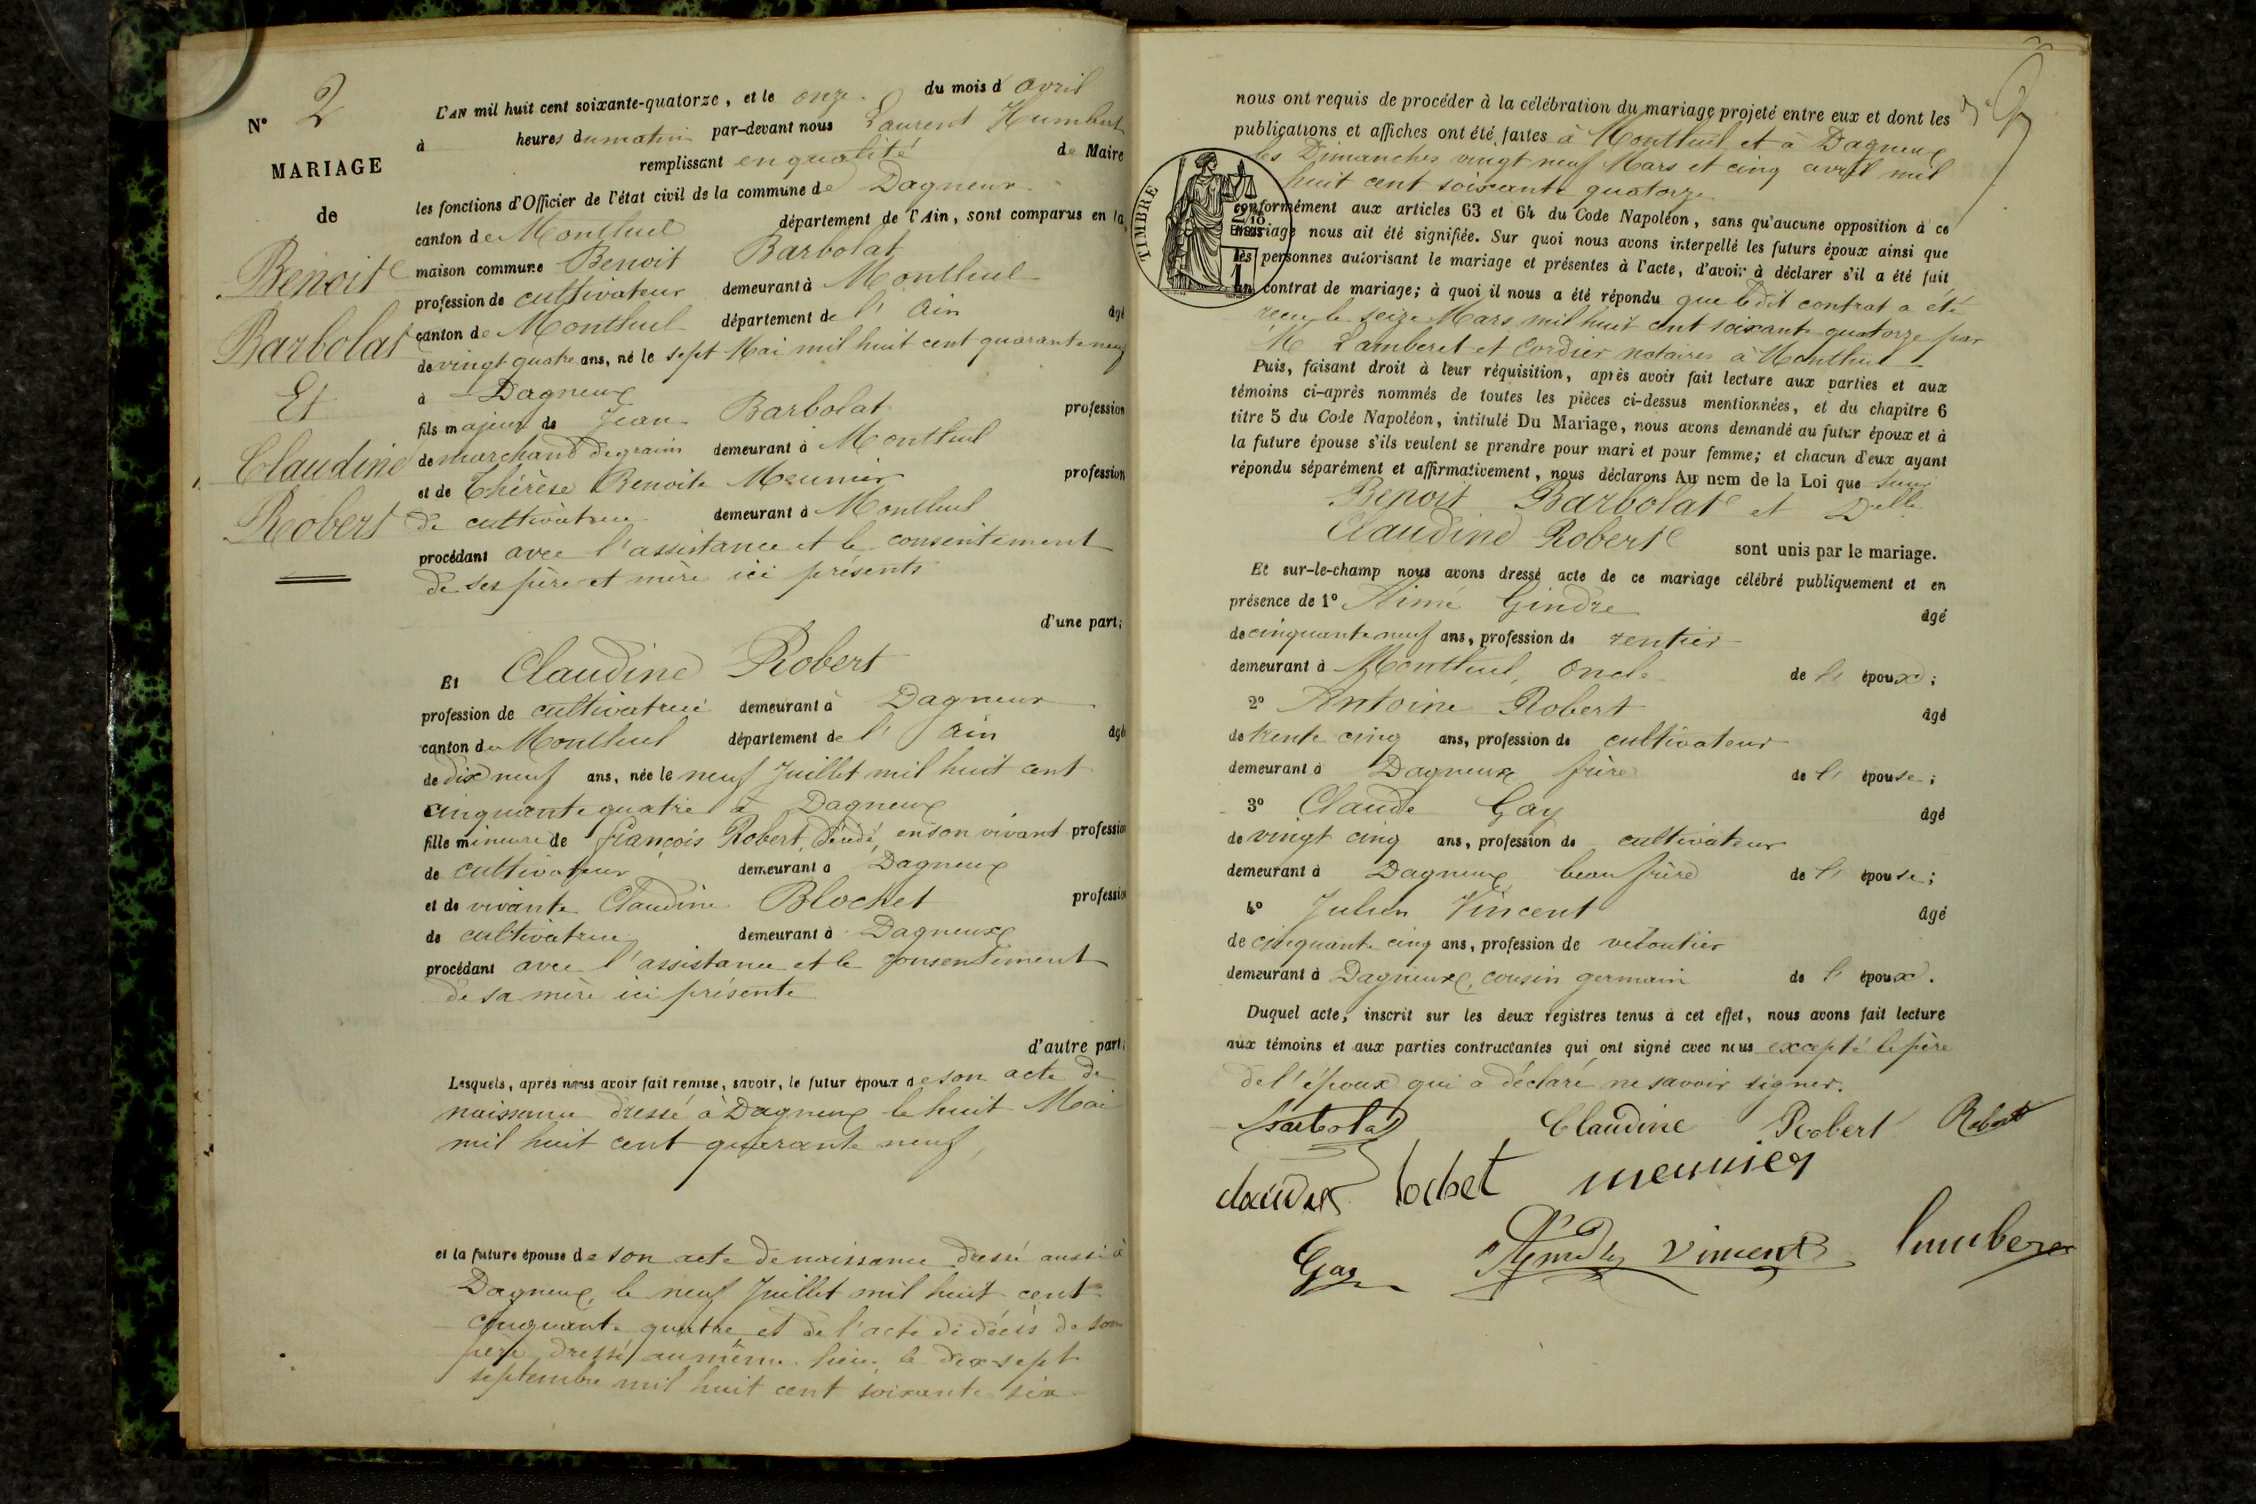 N° 2
MARIAGE
de
Benoit
Barbolat
Et
Claudine
Robert
L'AN mil huit cent soixante-quatorze, et le onze du mois d'avril
à heures du matin par-devant nous Laurent Humbert
remplissant en qualité de Maire
les fonctions d'Officier de l'état civil de la commune de Dagneux
canton de Montluel département de l'Ain, sont comparus en la
maison commune Benoit Barbolat
profession de cultivateur demeurant à Montluel
canton de Montluel département de l'Ain âgé
de vingt quatre ans, né le sept Mai mil huit cent quarante neuf
à Dagneux
fils majeur de Jean Barbolat profession
de marchand de grains demeurant à Montluel
et de Thérèse Benoite Meunier profession
de cultivatrice demeurant à Montluel
procédant avec l'assistance et le consentement
de ses père et mère ici présents
d'une part;
Et Claudine Robert
profession de cultivatrice demeurant à Dagneux
canton de Montluel département de l'Ain âgée
de dix neuf ans, née le neuf Juillet mil huit cent
cinquante quatre à Dagneux
fille mineure de françois Robert, décédé, en son vivant profession
de cultivateur demeurant à Dagneux
et de vivante Claudine Blochet profession
de cultivatrice demeurant à Dagneux
procédant avec l'assistance et le consentement
de sa mère ici présente
d'autre part;
Lesquels, après nous avoir fait remise, savoir, le futur époux de son acte de
naissance dressé à Dagneux le huit Mai
mil huit cent quarante neuf,
et la future épouse de son acte de naissance dressé aussi à
Dagneux, le neuf Juillet mil huit cent
cinquante quatre, et de l'acte de décès de son
père dressé au même lieu, le dix sept
septembre mil huit cent soixante six
nous ont requis de procéder à la célébration du mariage projeté entre eux et dont les
publications et affiches ont été faites à Montluel et à Dagneux
les Dimanches vingt neuf Mars et cinq avril mil
huit cent soixante quatorze
TIMBRE
2/10 EN SUS
conformément aux articles 63 et 64 du Code Napoléon, sans qu'aucune opposition à ce
mariage nous ait été signifiée. Sur quoi nous avons interpellé les futurs époux ainsi que
les personnes autorisant le mariage et présentes à l'acte, d'avoir à déclarer s'il a été fait
un contrat de mariage; à quoi il nous a été répondu que ledit contrat a été
reçu le seize Mars mil huit cent soixante quatorze par
M Lamberet et Cordier notaires à Montluel
Puis, faisant droit à leur réquisition, après avoir fait lecture aux parties et aux
témoins ci-après nommés de toutes les pièces ci-dessus mentionnées, et du chapitre 6
titre 5 du Code Napoléon, intitulé Du Mariage, nous avons demandé au futur époux et à
la future épouse s'ils veulent se prendre pour mari et pour femme; et chacun d'eux ayant
répondu séparément et affirmativement, nous déclarons Au nom de la Loi que
Benoit Barbolat et Delle
Claudine Robert sont unis par le mariage.
Et sur-le-champ nous avons dressé acte de ce mariage célébré publiquement et en
présence de 1° Aimé Gindre âgé
de cinquante neuf ans, profession de rentier
demeurant à Montluel, oncle de l'époux;
2° Antoine Robert âgé
de trente cinq ans, profession de cultivateur
demeurant à Dagneux frère de l'épouse;
3° Claude Gay âgé
de vingt cinq ans, profession de cultivateur
demeurant à Dagneux beau frère de l'épouse;
4° Julien Vincent âgé
de cinquante cinq ans, profession de veloutier
demeurant à Dagneux, cousin germain de l'époux.
Duquel acte, inscrit sur les deux registres tenus à cet effet, nous avons fait lecture
aux témoins et aux parties contractantes qui ont signé avec nous excepté le père
de l'époux qui a déclaré ne savoir signer.
Barbolat Claudine Robert Robert
meunier
Gay Vincent humbert